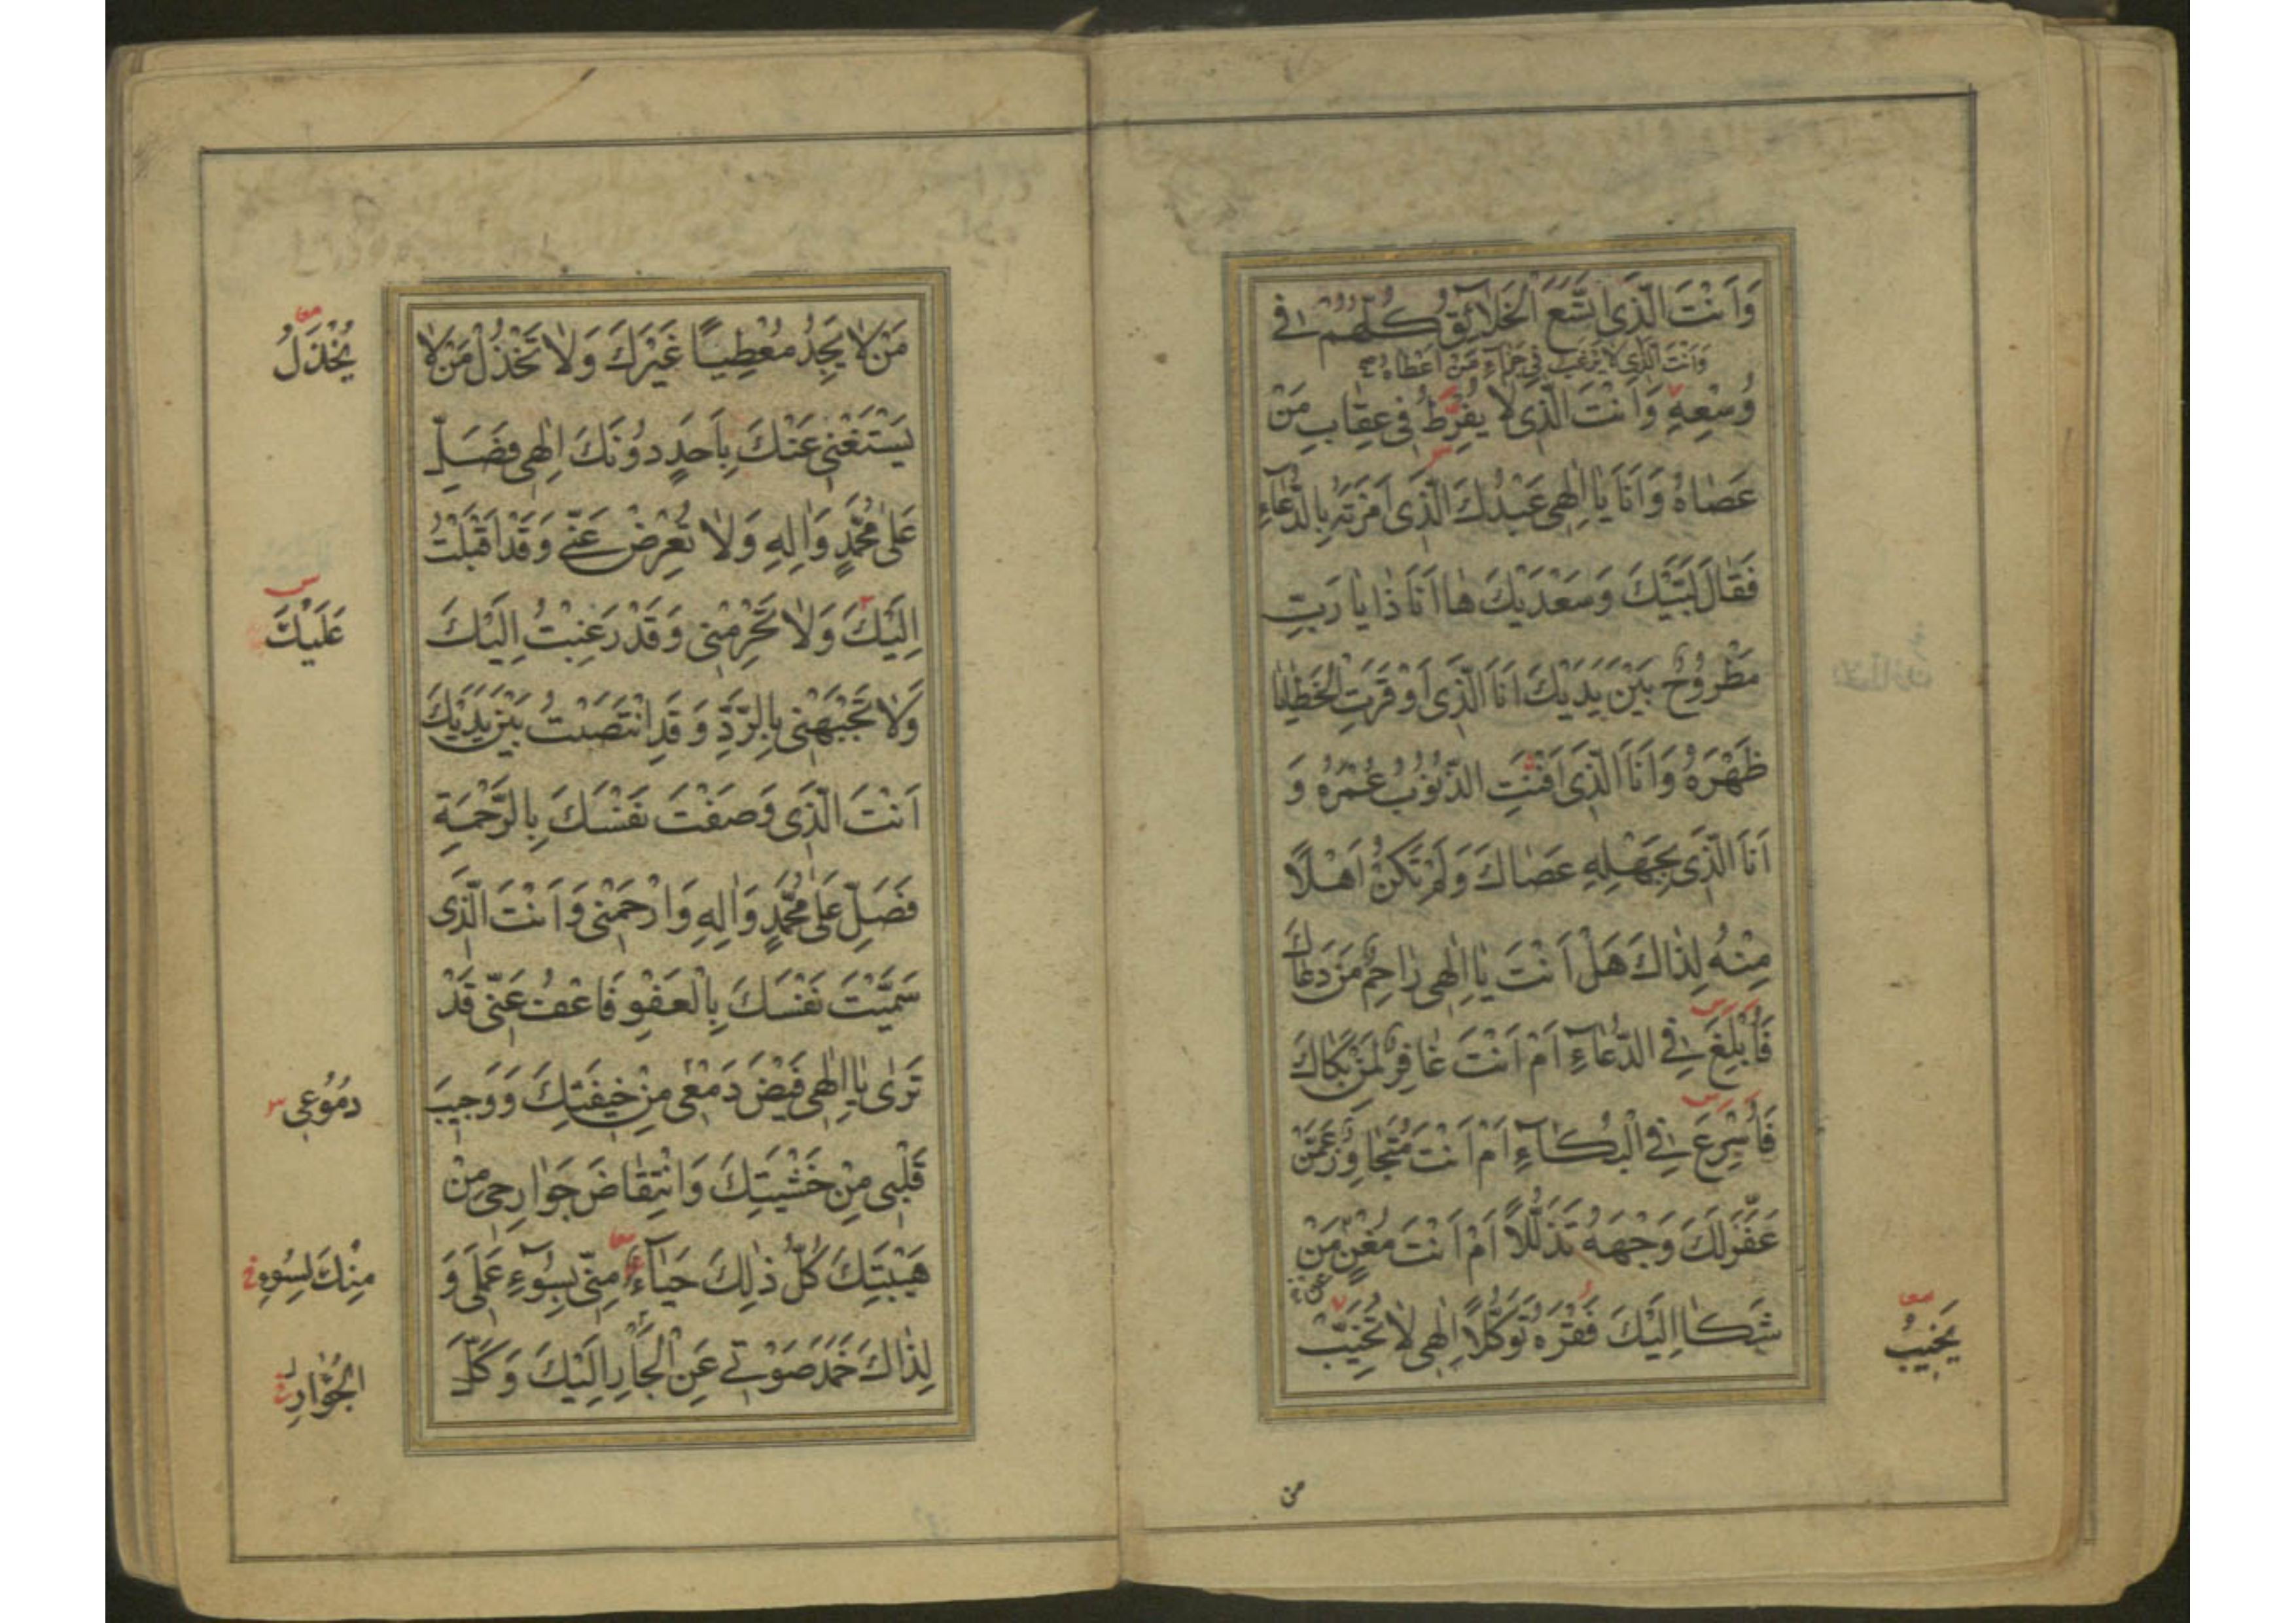 وَاَنْتَ الَّذَى اتَّسَعَ الْخَلَائِقُ كُلُّهُمْ فِى
وَاَنْتَ الَّذِى لَا يَرْغَبُ فِى جَزَاءِ مَنْ اَعْطَاهُ صح
وُسْعِهِ وَاَنْتَ الَّذِى لَا يُفْرِطُ فِى عِقَابِ مَنْ
عَصَاهُ وَاَنَا يَا اِلٰهِى عَبْدُكَ الَّذَى اَمَرْتَهُ بِالدُّعَآءِ
فَقَالَ لَبَّيْكَ وَسَعْدَيْكَ هَا اَنَا ذَا يَا رَبِّ
مَطْرُوحٌ بَيْنَ يَدَيْكَ اَنَا الَّذَى اَوْقَرَتِ الْخَطَايَا
ظَهْرَهُ وَاَنَا الَّذَى اَفْنَتِ الذُّنُوبُ عُمْرَهُ وَ
اَنَا الَّذِى بِجَهْلِهِ عَصَاكَ وَلَمْ تَكُنْ اَهْلًا
مِنْهُ لِذَاكَ هَلْ اَنْتَ يَا اِلٰهِى رَاحِمٌ مَنْ دَعَاكَ
فَاُبْلِغَ فِى الدُّعَآءِ اَمْ اَنْتَ غَافِرٌ لِمَنْ بَكَاكَ
فَاُسْرِعَ فِى الْبُكَآءِ اَمْ اَنْتَ مُتَجَاوِزٌ عَمَّنْ
عَفَّرَ لَكَ وَجْهَهُ تَذَلُّلًا اَمْ اَنْتَ مُغْنٍ مَنْ
شَكَا اِلَيْكَ فَقْرَهُ تَوَكُّلًا اِلٰهِى لَا تُخَيِّبْ
يَخِيبُ
من
مَنْ لَا يَجِدُ مُعْطِيًا غَيْرَكَ وَلَا تَخْذُلْ مَنْ لَا
يُخْذَلُ
يَسْتَغْنِى عَنْكَ بِاَحَدٍ دُونَكَ اِلٰهِى فَصَلِّ
عَلَى مُحَمَّدٍ وَاٰلِهِ وَلَا تُعْرِضْ عَنِّى وَقَدْ اَقْبَلْتُ
اِلَيْكَ وَلَا تَحْرِمْنِى وَقَدْ رَغِبْتُ اِلَيْكَ
عَلَيْكَ
وَلَا تَجْبَهْنِى بِالرَّدِّ وَقَدِ انْتَصَبْتُ بَيْنَ يَدَيْكَ
اَنْتَ الَّذَى وَصَفْتَ نَفْسَكَ بِالرَّحْمَةِ
فَصَلِّ عَلَى مُحَمَّدٍ وَاٰلِهِ وَارْحَمْنِى وَاَنْتَ الَّذَى
سَمَّيْتَ نَفْسَكَ بِالْعَفْوِ فَاعْفُ عَنِّى قَدْ
تَرٰى يَا اِلٰهِى فَيْضَ دَمْعِى مِنْ خِيفَتِكَ وَوَجِيبَ
دُمُوعِى
قَلْبِى مِنْ خَشْيَتِكَ وَانْتِقَاضَ جَوَارِحِى مِنْ
هَيْبَتِكَ كُلُّ ذٰلِكَ حَيَآءً مِنِّى بِسُوءِ عَمَلِى وَ
مِنْكَ لِسُوءِ
لِذَاكَ خَمَدَ صَوْتِى عَنِ الْجَأْرِ اِلَيْكَ وَكَلَّ
الْجُؤَارِ